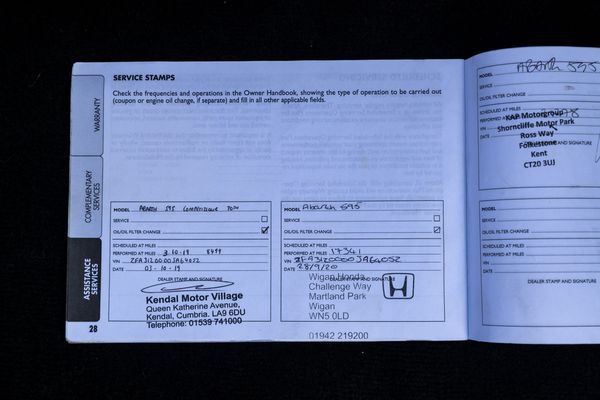 SERVICE STAMPS
Check the frequencies and operations in the Owner Handbook, showing the type of operation to be carried out
(coupon or engine oil change, if separate) and fill in all other applicable fields.
WARRANTY
COMPLEMENTARY
SERVICES
ASSISTANCE
SERVICES
28
MODEL ABARTH 595 COMPETIZIONE
SERVICE
OIL/OIL FILTER CHANGE
SCHEDULED AT MILES
PERFORMED AT MILES 3.10.19 8459
VIN
DATE 03-10-19
DEALER STAMP AND SIGNATURE
Kendal Motor Village
Queen Katherine Avenue,
Kendal, Cumbria. LA9 6DU
Telephone: 01539 741000
MODEL Abarth 595
SERVICE
OIL/OIL FILTER CHANGE
SCHEDULED AT MILES
PERFORMED AT MILES 17341
VIN
DATE 28/9/20
DEALER STAMP AND SIGNATURE
Wigan Honda
Challenge Way
Martland Park
Wigan
WN5 0LD
01942 219200
MODEL ABARTH 595
SERVICE
OIL/OIL FILTER CHANGE
SCHEDULED AT MILES
PERFORMED AT
VIN
DATE
DEALER STAMP AND SIGNATURE
KAP Motorgroup
Shorncliffe Motor Park
Ross Way
Folkestone
Kent
CT20 3UJ
MODEL
SERVICE
OIL/OIL FILTER CHANGE
SCHEDULED AT MILES
PERFORMED AT MILES
VIN
DATE
DEALER STAMP AND SIGNATURE